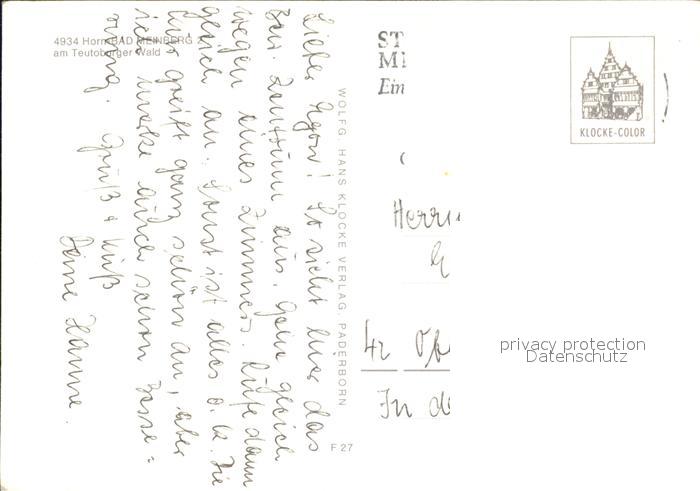 4934 Horn-BAD MEINBERG
am Teutoburger Wald
Lieber Egon! So sieht hier das
Zentrum aus. Gehe gleich
wegen eines Zimmers. Rufe dann
gleich an. Sonst ist alles o.k. Die
Kur greift ganz schön an, aber
ich merke auch schon Besse=
rung. Gruß & Kuß
Deine Hanne.
WOLFG. HANS KLOCKE VERLAG, PADERBORN
F 27
ST
MI
Ein
KLOCKE-COLOR
Herrn
42 Ob
In d
privacy protection
Datenschutz